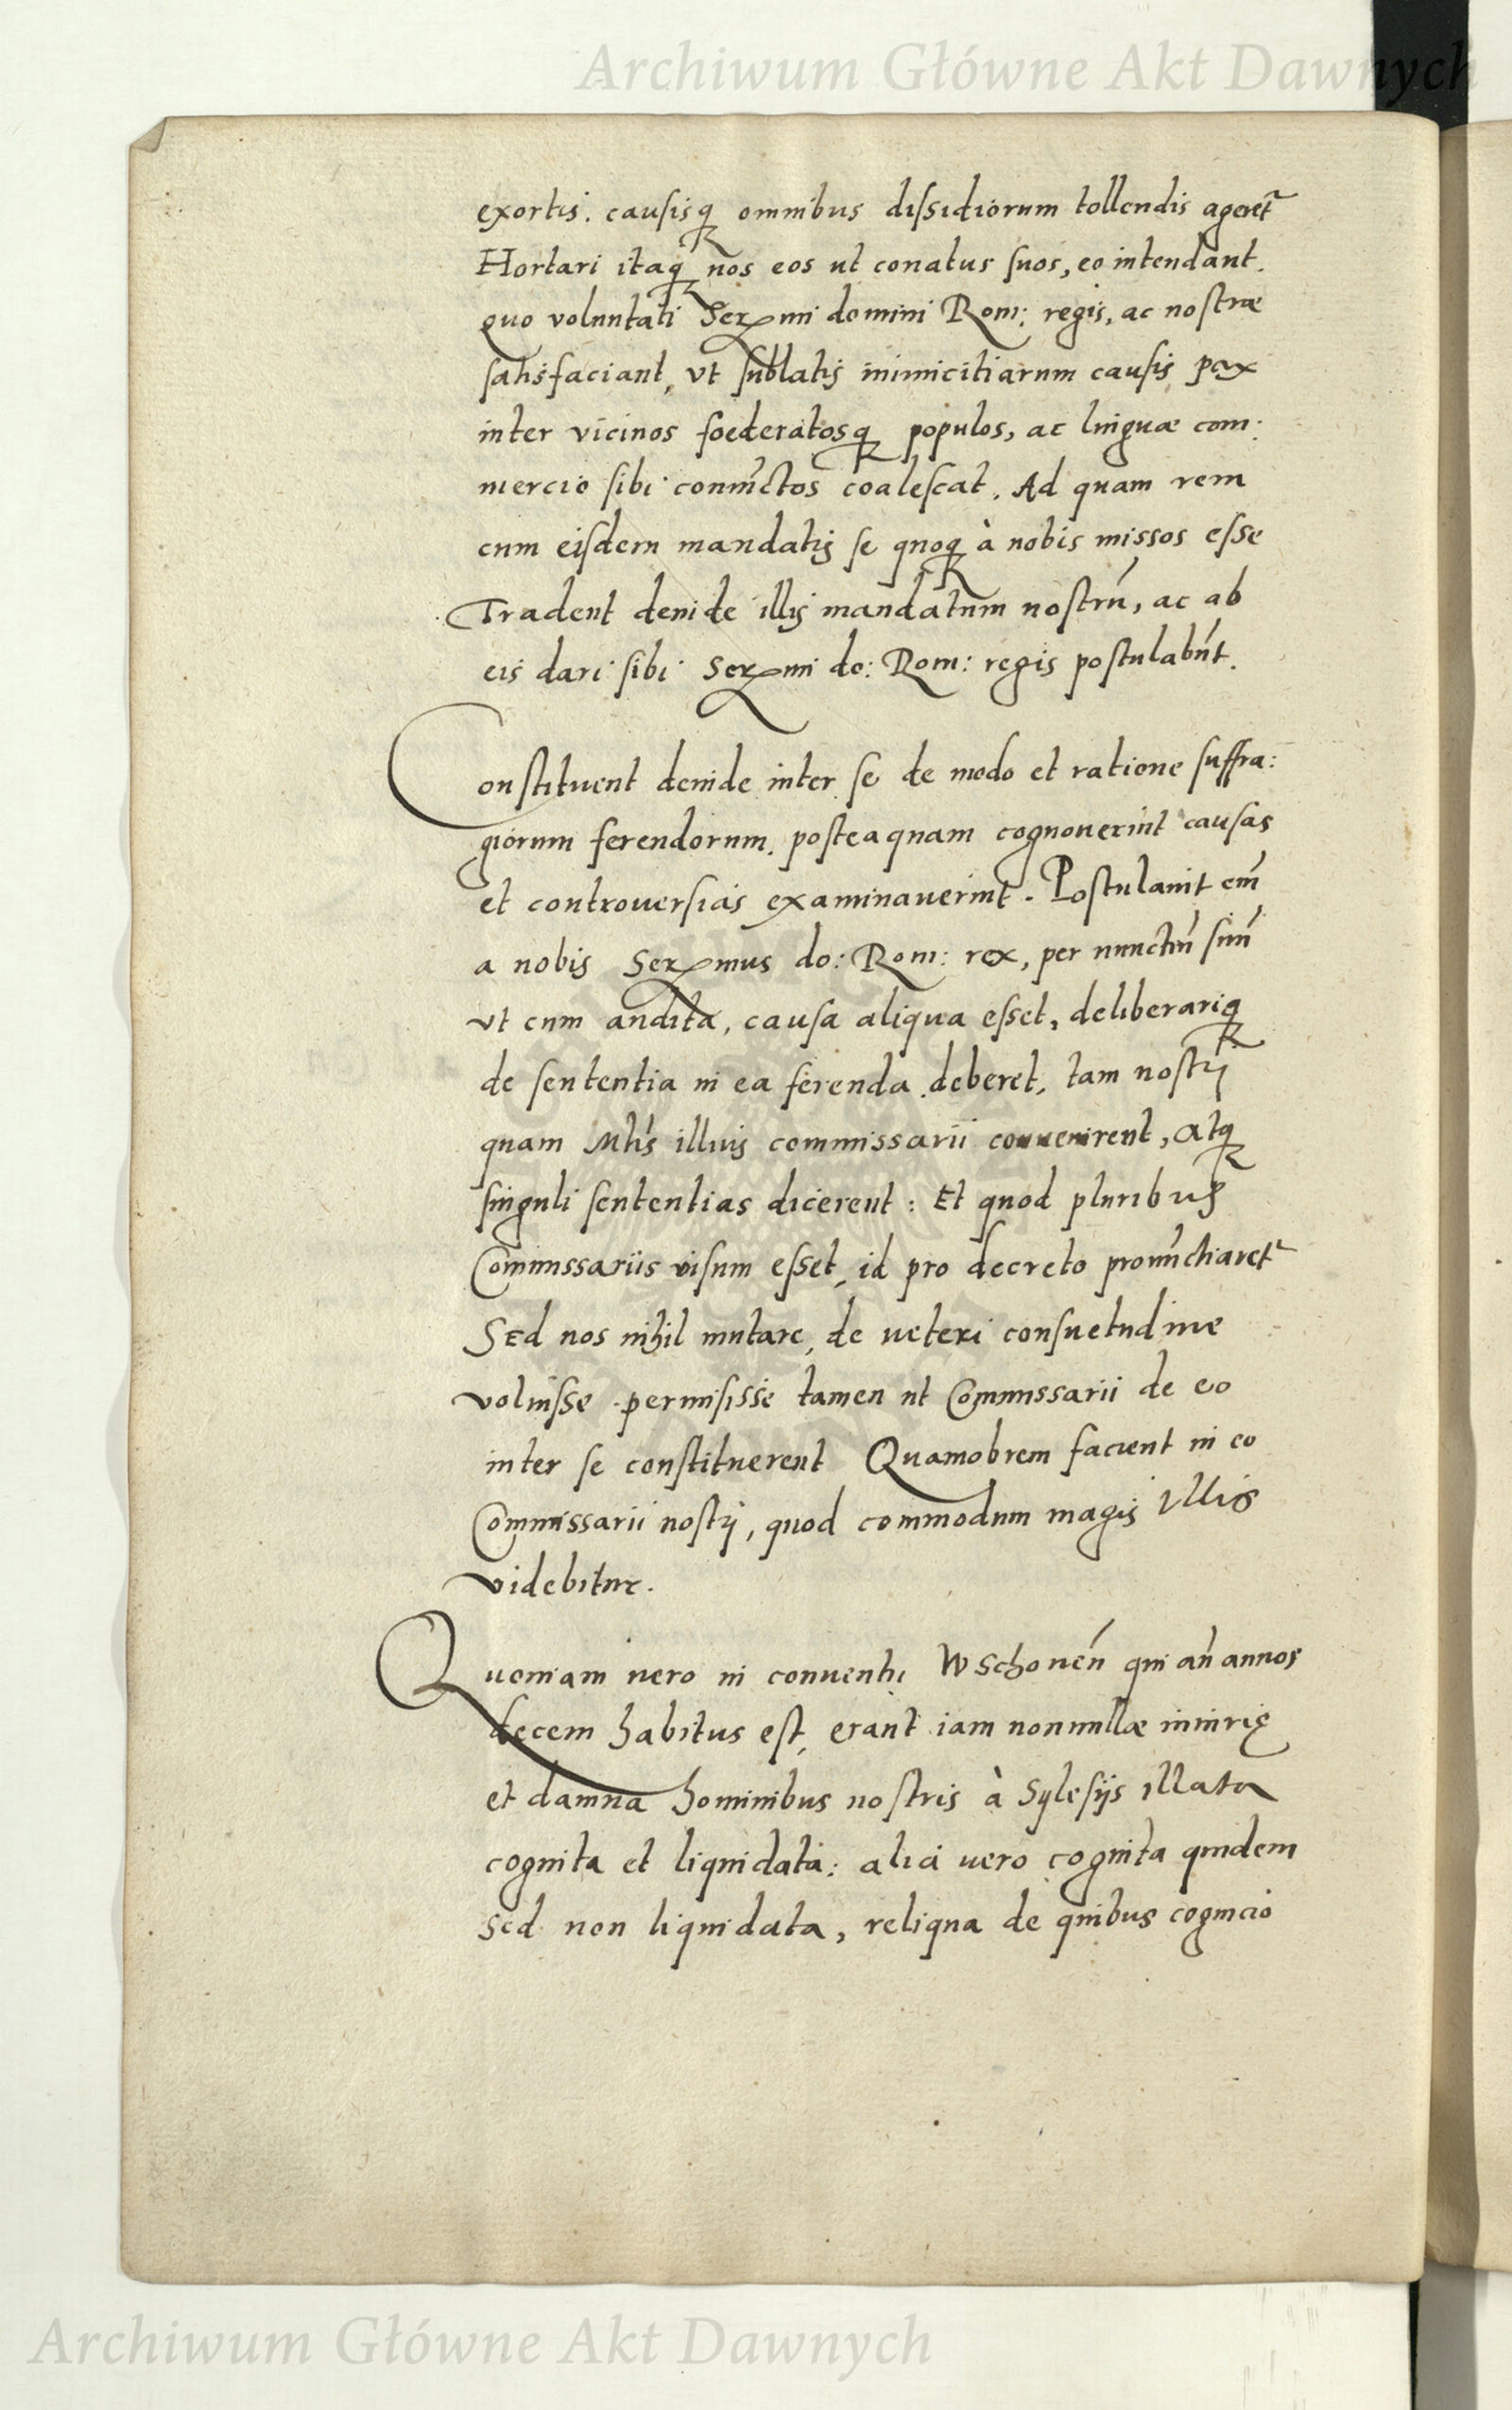 Archiwum Główne Akt Dawnych
exortis. causisq omnibus dissidiorum tollendis ageret᷑
Hortari itaq nos eos ut conatus suos, eo intendant.
quo voluntati Serᵐⁱ domini Rom: regis, ac nostræ
satisfaciant, vt sublatis inimicitiarum causis pax
inter vicinos foederatosq populos, ac linguæ com:
mercio sibi coniūctos coalescat. Ad quam rem
cum eisdem mandatis se quoq à nobis missos esse
Tradent deinde illis mandatum nostrū, ac ab
eis dari sibi Serᵐⁱ do: Rom: regis postulabūt.
Constituent deinde inter se de modo et ratione suffra:
giorum ferendorum. posteaquam cognouerint causas
et controuersias examinauerint. Postulauit em̄
a nobis Serᵐᵘˢ do: Rom: rex, per nunctiū suū
vt cum audita, causa aliqua esset, deliberariq
de sententia in ea ferenda deberet, tam nostri
quam Mtis illius commissarii conuenirent, atq
singuli sententias dicerent: Et quod pluribus
Commissariis visum esset, id pro decreto pronūctiaret᷑
Sed nos nihil mutare, de ueteri consuetudine
voluisse permisisse tamen ut Commissarii de eo
inter se constituerent Quamobrem facient in eo
Commissarii nostri, quod commodum magis illis
videbitur.
Quoniam uero in conuentu Wschouēn qui an̄ annos
decem habitus est, erant iam nonnullæ iniurię
et damna hominibus nostris à Sylesijs illata
cognita et liquidata: alia uero cognita quidem
sed non liquidata, reliqua de quibus cognicio
Archiwum Główne Akt Dawnych